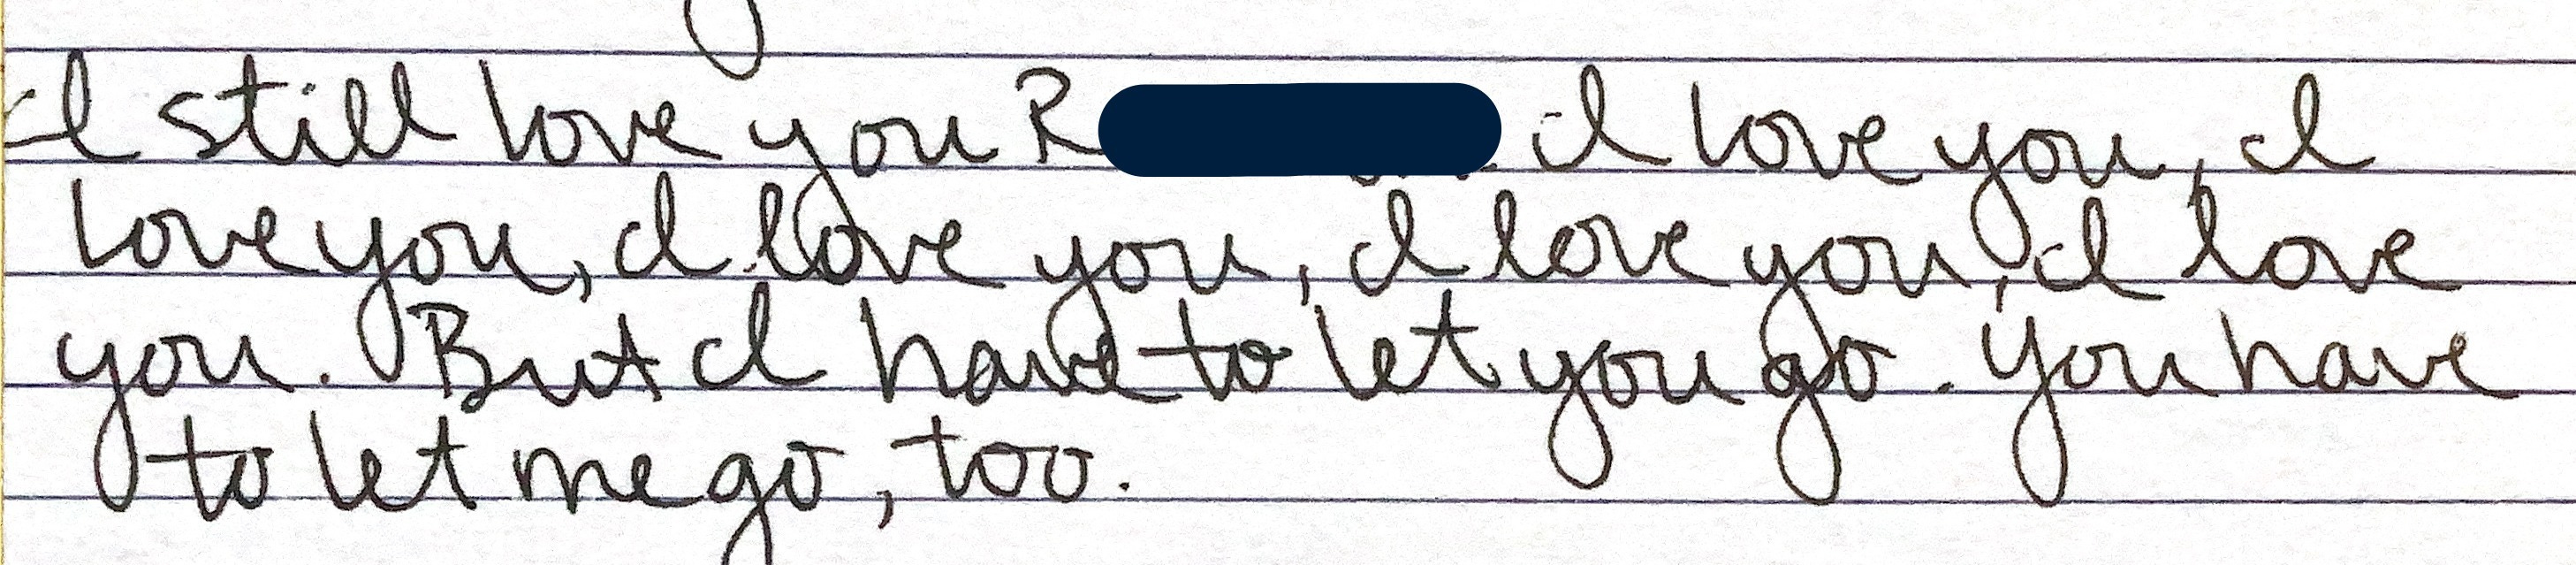 I still love you R . I love you, I
love you, I love you, I love you, I love
you. But I have to let you go. You have
to let me go, too.